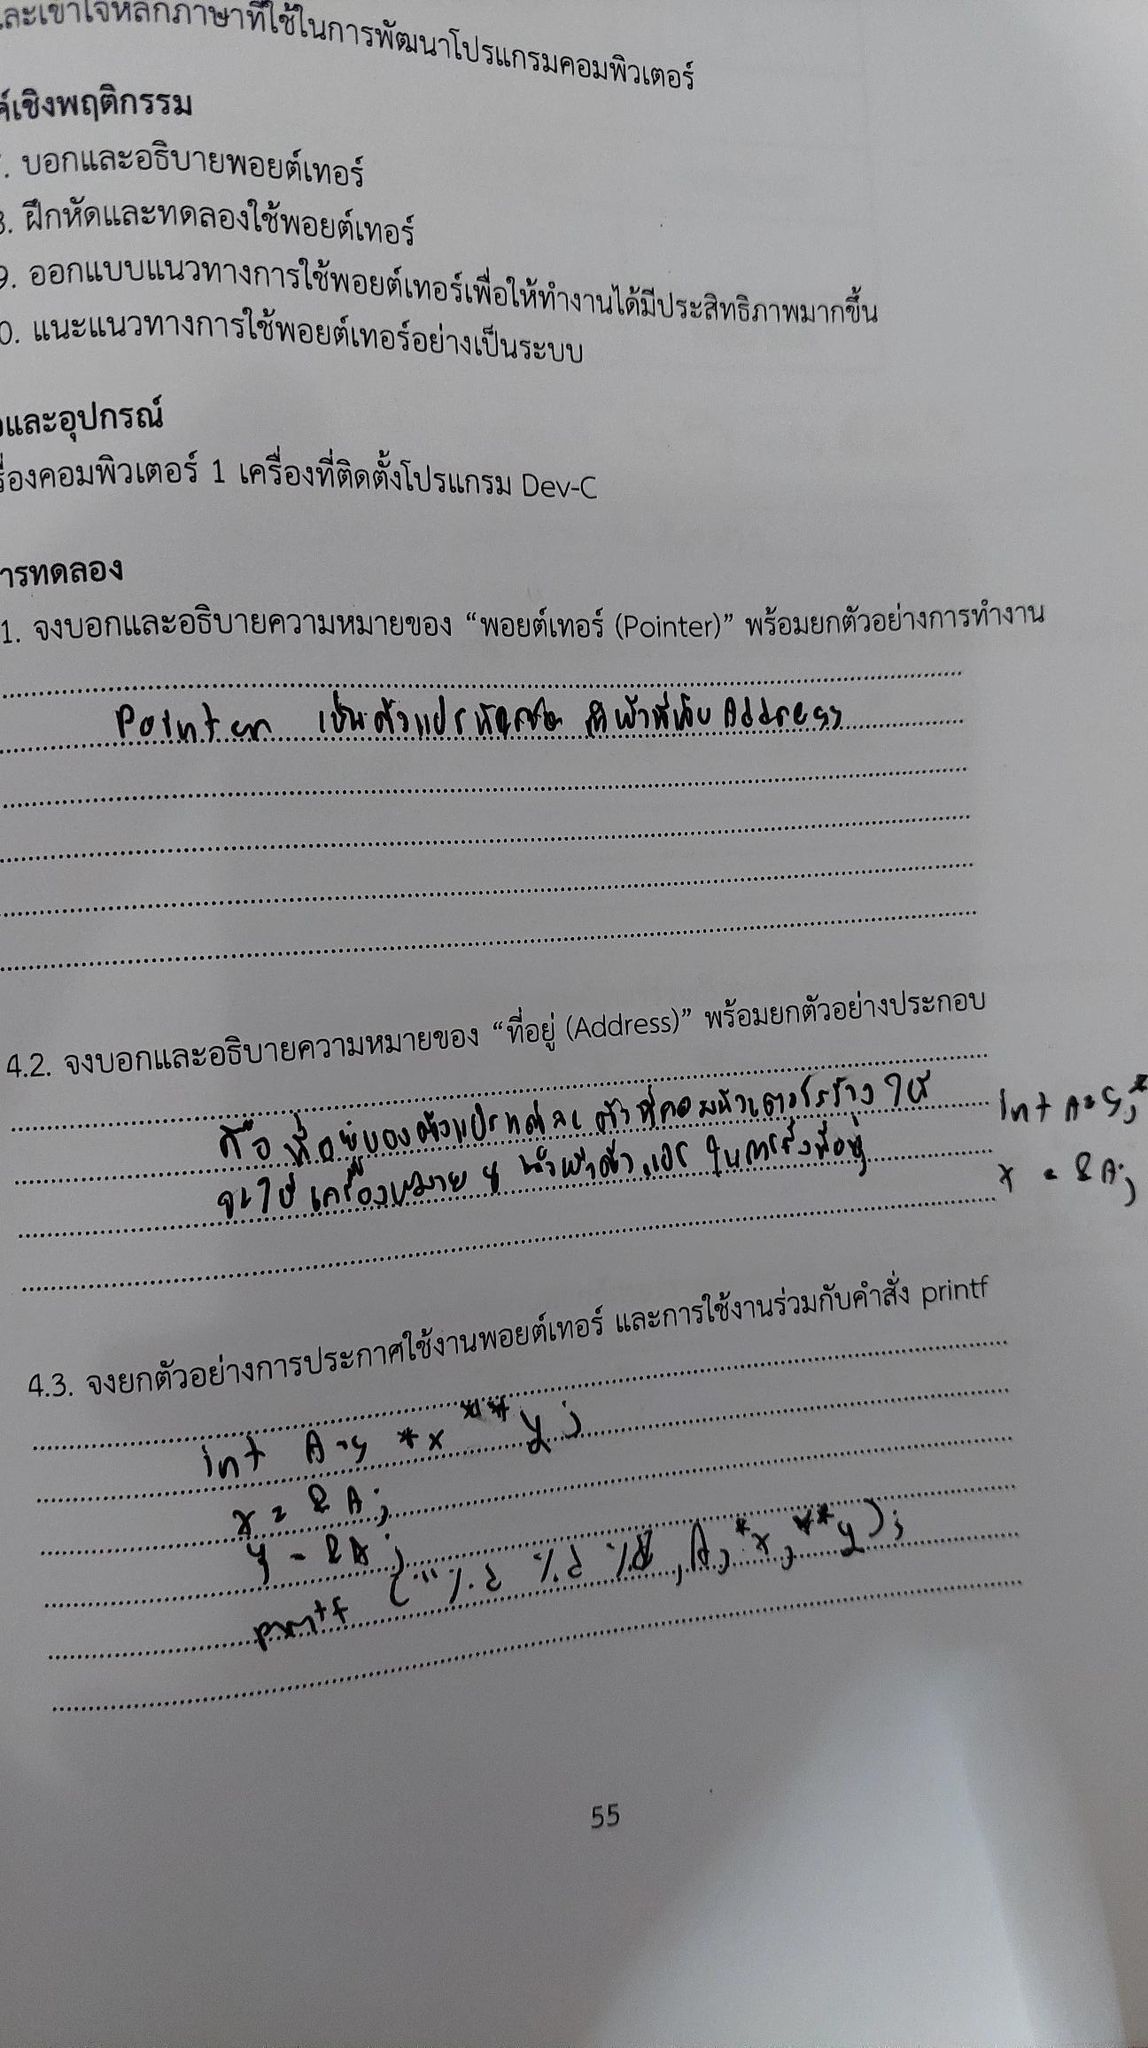 ละเข้าใจหลักภาษาที่ใช้ในการพัฒนาโปรแกรมคอมพิวเตอร์
ค์เชิงพฤติกรรม
. บอกและอธิบายพอยต์เทอร์
3. ฝึกหัดและทดลองใช้พอยต์เทอร์
9. ออกแบบแนวทางการใช้พอยต์เทอร์เพื่อให้ทำงานได้มีประสิทธิภาพมากขึ้น
0. แนะแนวทางการใช้พอยต์เทอร์อย่างเป็นระบบ
อและอุปกรณ์
รื่องคอมพิวเตอร์ 1 เครื่องที่ติดตั้งโปรแกรม Dev-C
ารทดลอง
1. จงบอกและอธิบายความหมายของ “พอยต์เทอร์ (Pointer)” พร้อมยกตัวอย่างการทำงาน
Pointer เป็นตัวแปรชนิด ทำหน้าที่เก็บ Address
4.2. จงบอกและอธิบายความหมายของ “ที่อยู่ (Address)” พร้อมยกตัวอย่างประกอบ
คือ ที่อยู่ของตัวแปรแต่ละ ตัวที่คอมพิวเตอร์สร้าง ให้
จะใช้ เครื่องหมาย & นำหน้าตัวแปร ในการอ้างที่อยู่
int A=5,*
x = &A;
4.3. จงยกตัวอย่างการประกาศใช้งานพอยต์เทอร์ และการใช้งานร่วมกับคำสั่ง printf
int A=5 *x **y;
x = &A;
y = &x;
printf ("%d %d %d ,A,*x,**y);
55